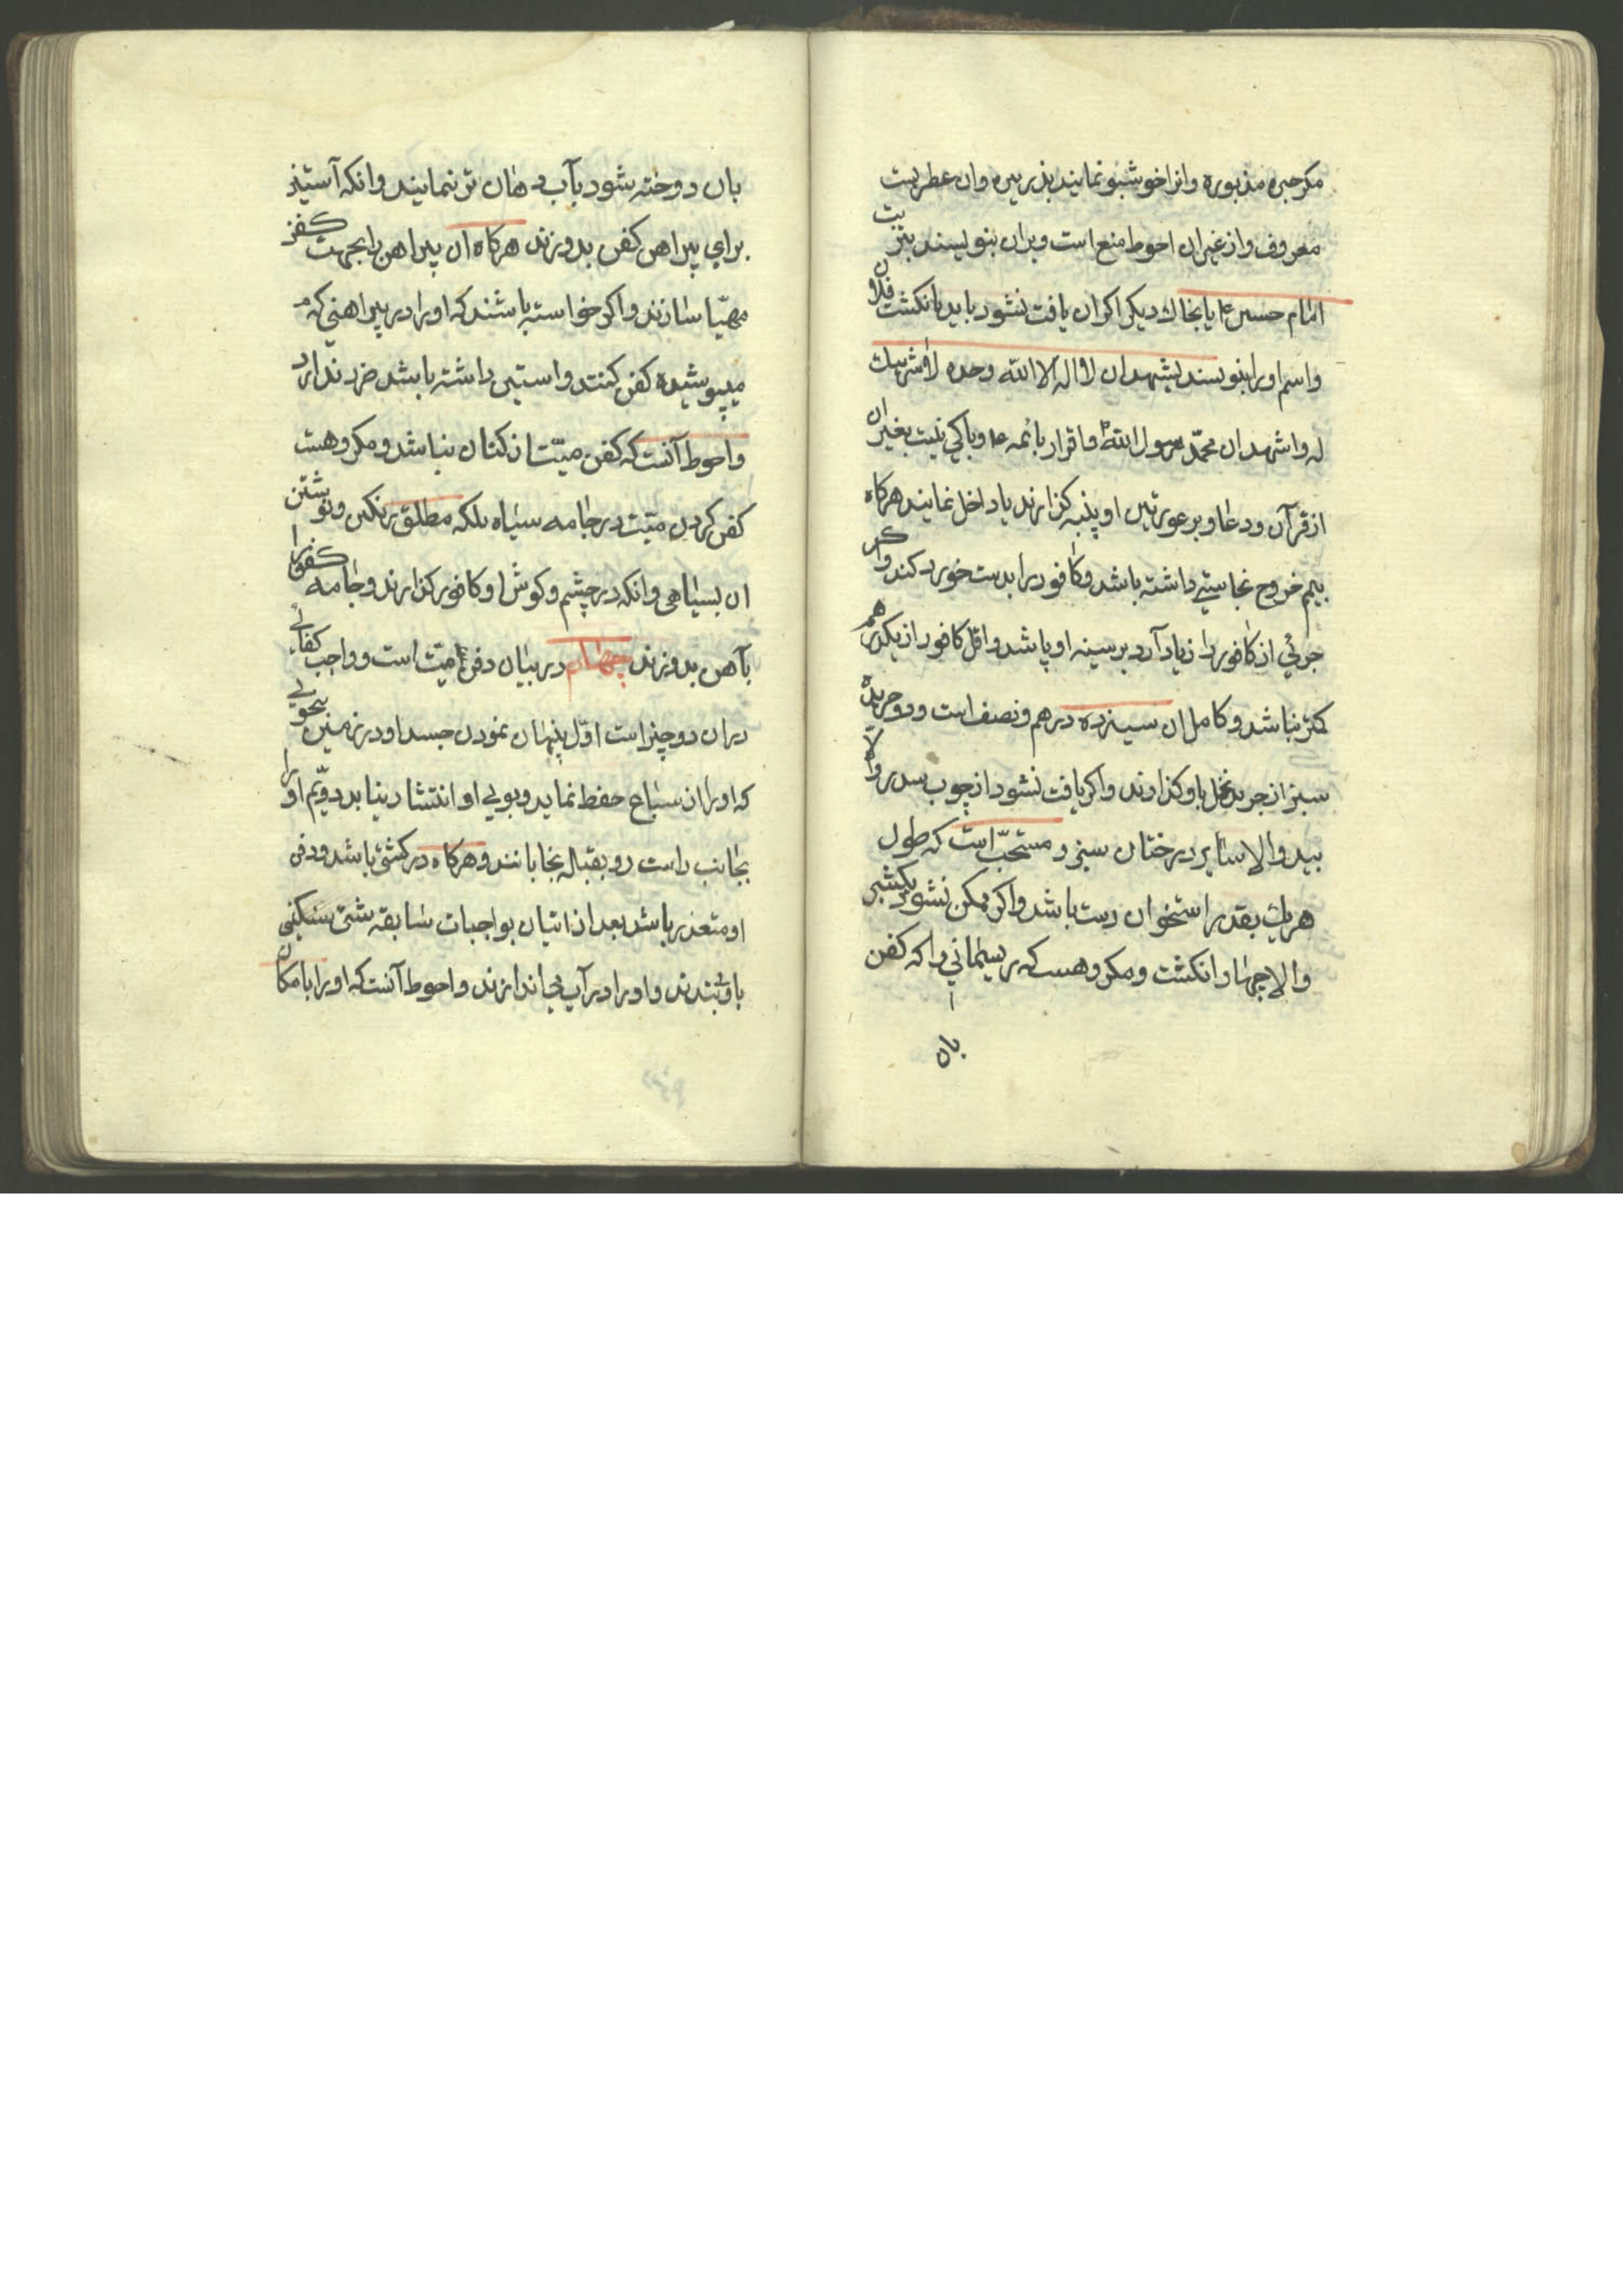 مکر حبره مذبوره وانرا خوشبو نمایند بذریره وان عطریست
معروف واز غیر ان احوط منع است وبران بنویسند بتربت
امام حسین ع یا بخاك دیکر اکر ان یافت نشود باید بانکشت فلان
واسم او را بنویسند یشهد ان لا اله الا الله وحده لا شریك
له واشهد ان محمّد رسول الله ص واقرار بائمه ع وباکی نیست بغیر ان
از قرآن ودعا وبر عورتین او پنبه کزارند یا داخل نمایند هرکاه
بیم خروج نجاستی داشته باشد وکافور را بدست خورد کنند واکر
جزئی از کافور را زیاد آرد بر سینه او پاشد واقل کافور از یکدرهم
کمتر نباشد وکامل ان سیزده درهم ونصف است ودو جریدۀ
سبز از جرید نخل باو کذارند واکر یافت نشود از چوب سدر والّا
بید والا سایر درختان سبز و مستحبّ است که طول
هریك بقدر استخوان دست باشد واکر ممکن نشود یکشبر
والا چهار انکشت ومکروهست که ریسمانی را که کفن
بان
بان دوخته شود بآب دهان تر نمایند وانکه آستین
برای پیراهن کفن بدوزند هرکاه ان پیراهن را بجهت کفن
مهیّا سازند واکر خواسته باشند که او را در پیراهنی که
میپوشیده کفن کنند واستین داشته باشد ضرر ندارد
واحوط آنست که کفن میّت از کتان نباشد ومکروهست
کفن کردن میّت در جامه سیاه بلکه مطلق رنکین ونوشتن
ان بسیاهی وانکه در چشم وکوش او کافور کذارند وجامه کفن را
بآهن بدوزند چهارم در بیان دفن میّت است وواجب کفائی
دران دو چیز است اوّل پنهان نمودن جسد او در زمین بنحوی
که او را از سباع حفظ نماید وبوی او انتشار نیابد دویّم او را
بجانب راست رو بقبله بخابانند وهرکاه در کشتی باشد ودفن
او متعذر باشد بعد از اتیان بواجبات سابقه شئ سنکینی
باو ببندند واو را در آب بیاندازند واحوط آنست که او را با مکان